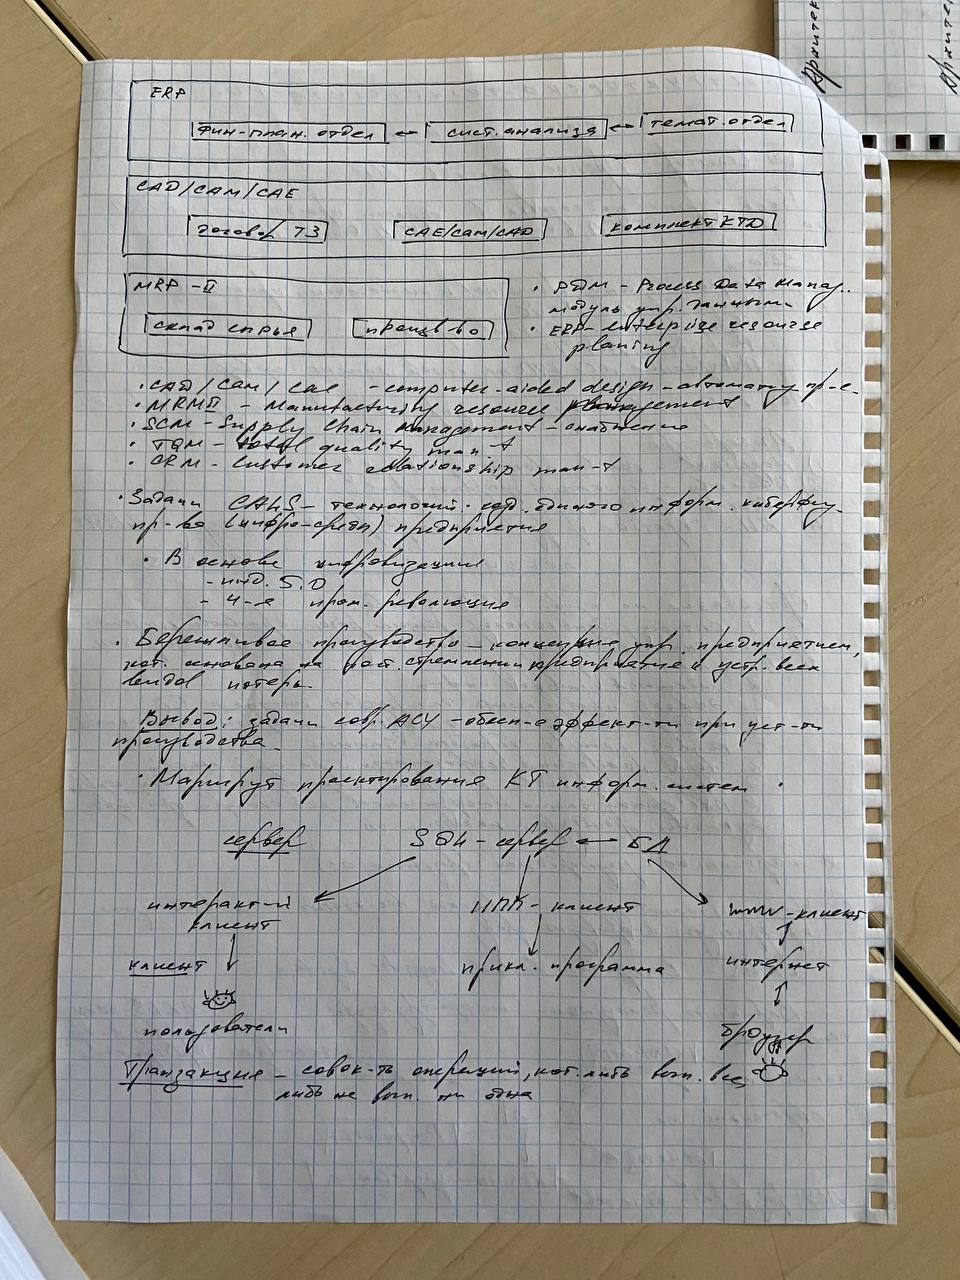 ERP
фин-план. отдел ↔ сист. анализа ↔ темат. отдел
CAD/CAM/CAE
договор/ТЗ CAE/CAM/CAD комплект КТД
MRP-II
склад сырья произв-во
• PDM - Process Data Manag.
модуль упр. данными
• ERP - enterprise resource
planing
• CAD/CAM/CAE - computer-aided design - автоматич. пр-е
• MRMII - Manufacturing resource management
• SCM - Supply Chain Management - снабжение
• TQM - total quality man-t
• CRM - Customer relationship man-t
• Задачи CALS-технологий: единого информ. киберфиз.
пр-ва (цифро-среды) предприятия
• В основе цифровизации
- инд. 5.0
- 4-я пром. революция
• Бережливое производство - концепция упр. предприятием,
кот. основана на пост. стремлении предприятия к устр. всех
видов потерь.
Вывод: задачи совр. АСУ - обесп-е эффект-ти при уст-ти
производства.
• Маршрут проектирования КТ информ. систем
сервер SQL-сервер ↔ БД
интеракт-й
клиент
ИПП-клиент
www-клиент
клиент
прикл. программа
интернет
пользователи
браузер
Транзакция - совок-ть операций, кот. либо вып. все,
либо не вып. ни одна
Архитек
Архите